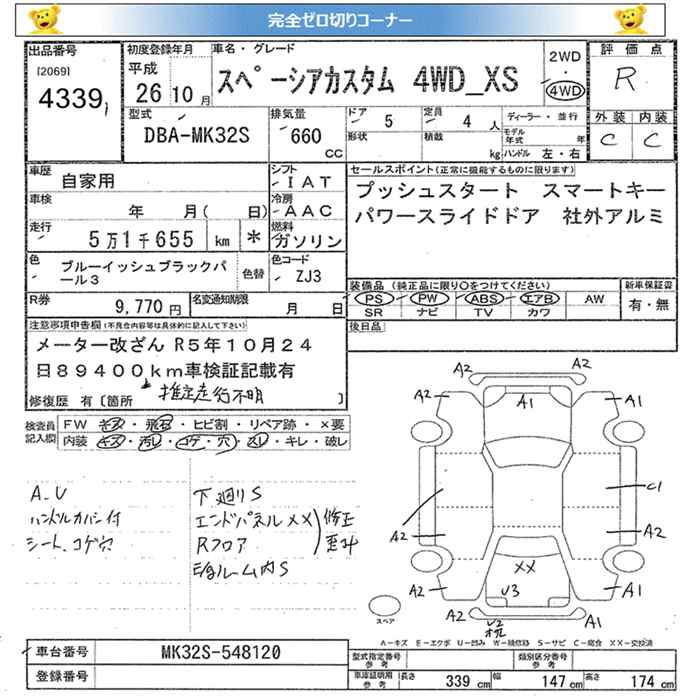 完全ゼロ切りコーナー
出品番号
[2069]
4339
初度登録年月
平成
26年10月
車名・グレード
スペーシアカスタム 4WD_XS
2WD
・
4WD
評価点
R
外装 内装
C C
型式
DBA-MK32S
排気量
660
CC
ドア 5
形状
定員 4 人
積載 kg
ディーラー・並行
モデル年式 年
ハンドル 左・右
車歴
自家用
シフト
IAT
車検
年 月( 日)
冷房
AAC
走行
5万1千655 km *
燃料
ガソリン
色
ブルーイッシュブラックパール3
色替
色コード
ZJ3
R券
9,770円
名変通知期限
月 日
セールスポイント(正常に機能するものに限ります)
プッシュスタート スマートキー
パワースライドドア 社外アルミ
装備品 (純正品に限り○をつけてください)
PS PW ABS エアB AW
SR ナビ TV カワ
新車保証書
有・無
後日品
注意事項申告欄(不良内容等は具体的に記入して下さい)
メーター改ざん R5年10月24
日89400km車検証記載有
推定走行不明
修復歴 有〔箇所 〕
検査員記入欄
FW キズ・飛石・ヒビ割・リペア跡・×要
内装 キズ・汚レ・コゲ・穴・スレ・キレ・破レ
A.V
ハンドルカバー付
シート、コゲ穴
下廻りS
エンドパネルXX
Rフロア
修正
歪み
ルーム内S
A2
A2
A2
A1
A1
C1
A2
A2
A2
XX
V3
A1
A1
スペア
A-キズ E-エクボ U-凹み W-補修跡 S-サビ C-腐食 XX-交換済
車台番号
MK32S-548120
登録番号
型式指定番号
参考
類別区分番号
参考
車庫証明用
参考
長さ 339 cm
幅 147 cm
高さ 174 cm